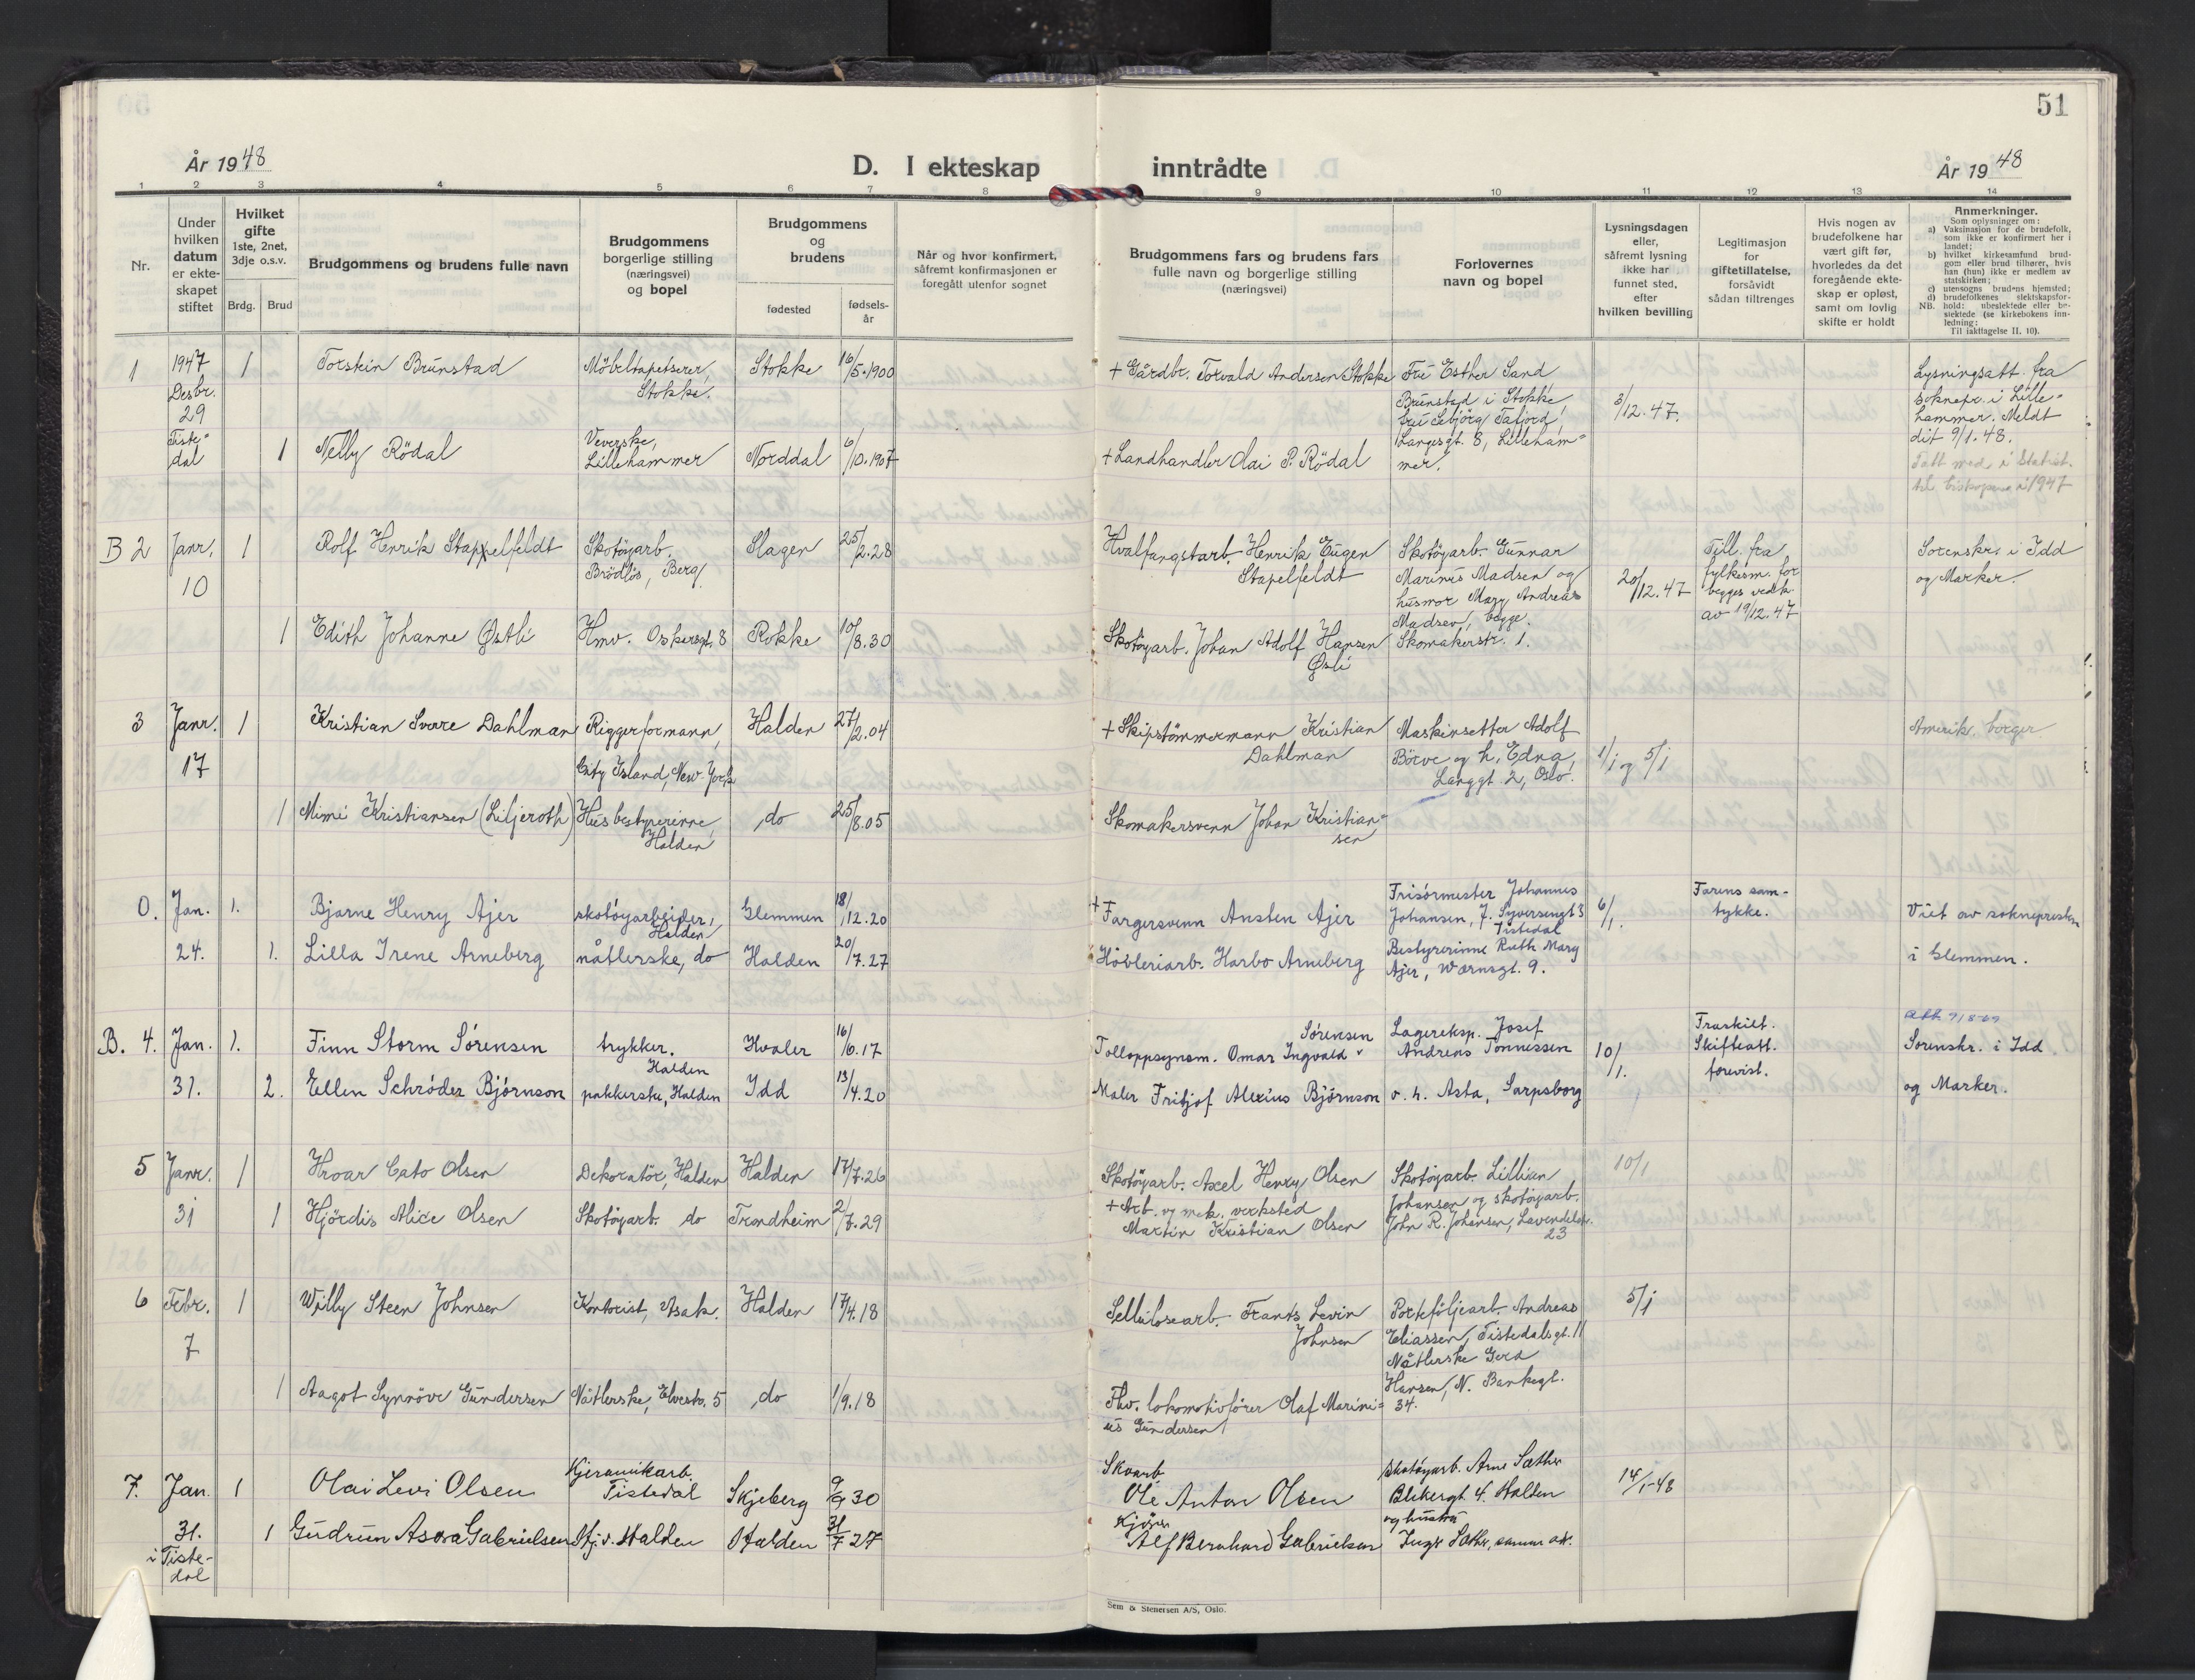 51
År 1948
D. I ekteskap inntrådte
År 1948
1 2 3 4 5 6 7 8 9 10 11 12 13 14
Nr.
Under hvilken datum er ekte-skapet stiftet
Hvilket gifte 1ste, 2net, 3dje o.s.v.
Brdg.
Brud
Brudgommens og brudens fulle navn
Brudgommens borgerlige stilling (næringsvei) og bopel
Brudgommens og brudens
fødested
fødsels-år
Når og hvor konfirmert, såfremt konfirmasjonen er foregått utenfor sognet
Brudgommens fars og brudens fars fulle navn og borgerlige stilling (næringsvei)
Forlovernes navn og bopel
Lysningsdagen eller, såfremt lysning ikke har funnet sted, efter hvilken bevilling
Legitimasjon for giftetillatelse, forsåvidt sådan tiltrenges
Hvis nogen av brudefolkene har vært gift før, hvorledes da det foregående ekte-skap er opløst, samt om lovlig skifte er holdt
Anmerkninger.
Som oplysninger om:
a) Vaksinasjon for de brudefolk, som ikke er konfirmert her i landet;
b) hvilket kirkesamfund brud-gom eller brud tilhører, hvis han (hun) ikke er medlem av statskirken;
c) utensogns brudens hjemsted;
d) brudefolkenes slektskapsfor-hold: ubeslektede eller be-slektede (se kirkebokens inn-ledning:
NB. Til iakttagelse II. 10).
1 1947 Desbr. 29 Tiste-dal
1 Torstein Brunstad Möbeltapetserer, Stokke. Stokke 16/5.1900
+ Gårdbr. Torvald Andersen Stokke
Fru Esther Sand Brunstad i Stokke
fru Lebjörg Tafjord, Langesgt. 8, Lilleham-mer.
3/12.47.
Lysningsatt. fra soknepr. i Lille-hammer. Meldt dit 9/1.48.
Tatt med i Statist. til biskopen i 1947
1 Nelly Rödal Veverske, Lillehammer Norddal 6/10.1907
+ Landhandler Olai P. Rödal
B 2 Janr. 10
1 Rolf Henrik Stappelfeldt Skotöyarb. Brödløs, Berg Slagen 25/2.28
Hvalfangstarb. Henrik Eugen Stapelfeldt
Skotöyarb. Gunnar Marinus Madsen og husmor Mary Andreas Madsen, begge. Skomakerstr. 1.
20/12.47
Till. fra fylkesm. for begges vedk. av 19/12.47
Sorenskr. i Idd og Marker.
1 Edith Johanne Østli Hmv. Oskarsgt. 8 Rokke 10/8.30
Skotöyarb. Johan Adolf Hansen Østli
3 Janr. 17
1 Kristian Sverre Dahlman Riggerformann, City Island, New York Halden 27/2.04
+ Skipstömmermann Kristian Dahlman
Maskinsetter Adolf Börve og h. Edna, Langgt. 2, Oslo.
1/1 og 5/1
Amerik. borger
1 Mimi Kristiansen (Liljeroth) Husbestyrerinne, Halden do 25/8.05
Skomakersvenn Johan Kristian-sen
0. Jan. 24.
1. Bjarne Henry Ajer skotöyarbeider, Halden Glemmen 18/12.20
+ Fargersvenn Ansten Ajer
Frisörmester Johannes Johansen, J. Syversengt 3 Tistedal
6/1.
Farens sam-tykke.
Viet av soknepresten i Glemmen.
1. Lilla Irene Arneberg nåtlerske, do Halden 20/7.27
Høvleriarb. Harbo Arneberg
Bestyrerinne Ruth Mary Ajer, Wærnsgt. 9.
B. 4. Jan. 31.
1. Finn Storm Sörensen trykker. Halden Hvaler 16/6.17
Tolloppsynsm. Omar Ingvald Sörensen
Lagereksp. Josef Andreas Tönnessen o. h. Asta, Sarpsborg
10/1.
Fraskilt. Skifteatt. forevist.
Att. 7/8-69
Sorenskr. i Idd og Marker.
2. Ellen Schröder Björnson pakkerske, Halden Idd 13/4.20
Maler Fritjof Alexius Björnson
5 Janr. 31
1 Hroar Cato Olsen Dekoratör, Halden Halden 17/7.26
Skotöyarb. Axel Henry Olsen
Skotöyarb. Lillian Johansen og skotöyarb. John R. Johansen, Lavendelstr. 23
10/1
1 Hjördis Alice Olsen Skotöyarb. do Trondheim 2/7.29
+ Arb. og mek. verksted Martin Kristian Olsen
6 Febr. 7
1 Willy Steen Johnsen Kontorist, Asak. Halden 17/4.18
Sellulosearb. Frants Levin Johnsen
Porteföljearb. Andreas Eliassen, Tistedalsgt. 11
Nåtlerske Gerd Hansen, N. Bankegt. 34.
5/1
1 Aagot Synnöve Gundersen Nåtlerske, Elvestr. 5 do 1/9.18
Fhv. lokomotivförer Olaf Marini-us Gundersen
7. Jan. 31. i Tiste-dal
1 Olai Levi Olsen Kjeramikarb. Tistedal Skjeberg 9/9 30
Skoarb. Ole Anton Olsen
Skotøyarb. Arne Sæther Blikergt. 4. Halden og hustru Inger Sæther, samme adr.
14/1-48
1 Gudrun Asora Gabrielsen Hj.v. Halden Halden 31/7 27
Kjører Alf Bernhard Gabrielsen
Sem & Stenersen A/S, Oslo.